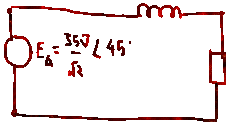 E_A = 35V/√2 ∠ 45°